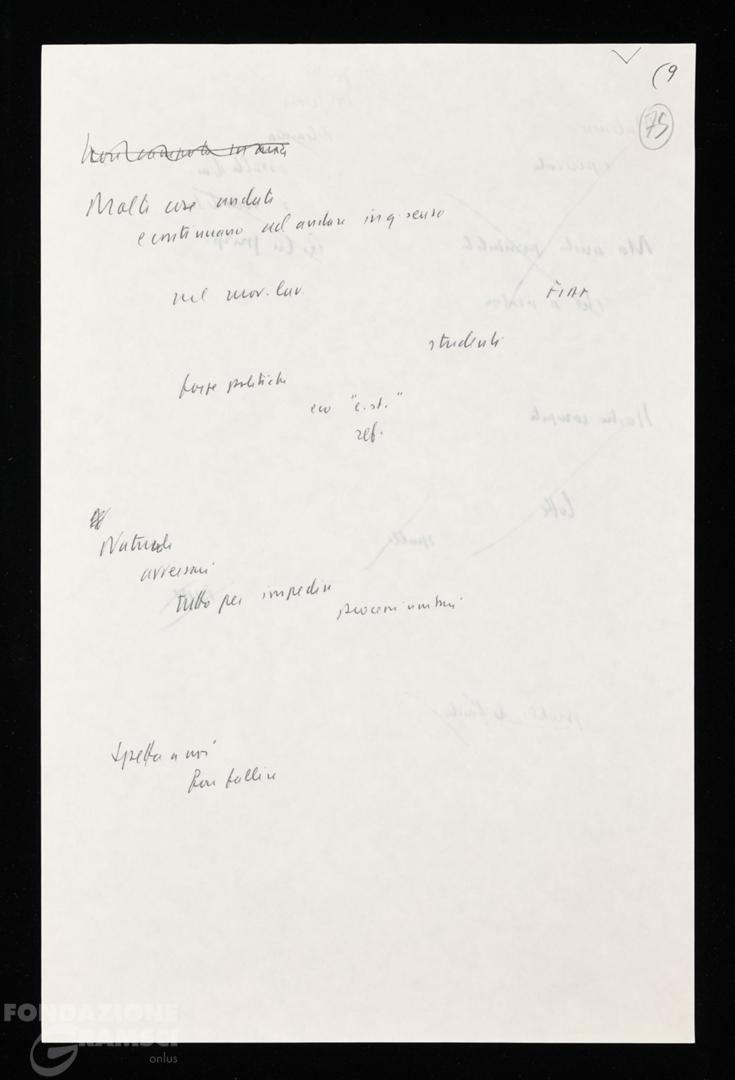 (9
75
Molte cose andate
e continuano ad andare in q. senso
nel mov. lav.
FIAT
studenti
forze politiche
eco "c.st."
ref.
Naturale
avversari
tutto per impedire
processi unitari
Spetta a noi
farli fallire
FONDAZIONE
GRAMSCI
onlus